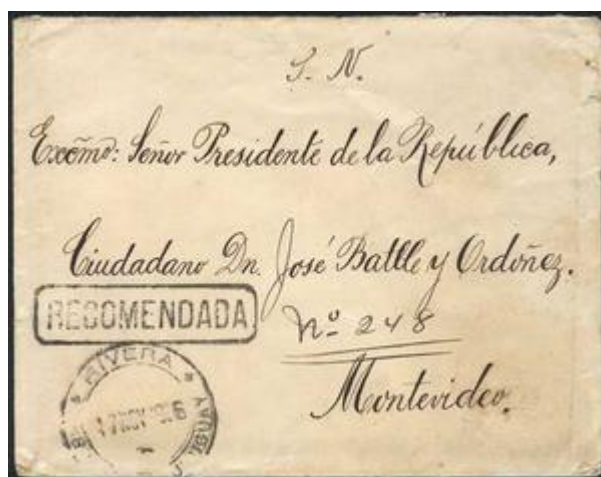 S. N.
Excmõ: Señor Presidente de la República,
Ciudadano Dn. José Batlle y Ordóñez.
RECOMENDADA
Nº 248
RIVERA
Montevideo.
17 NOV 1906